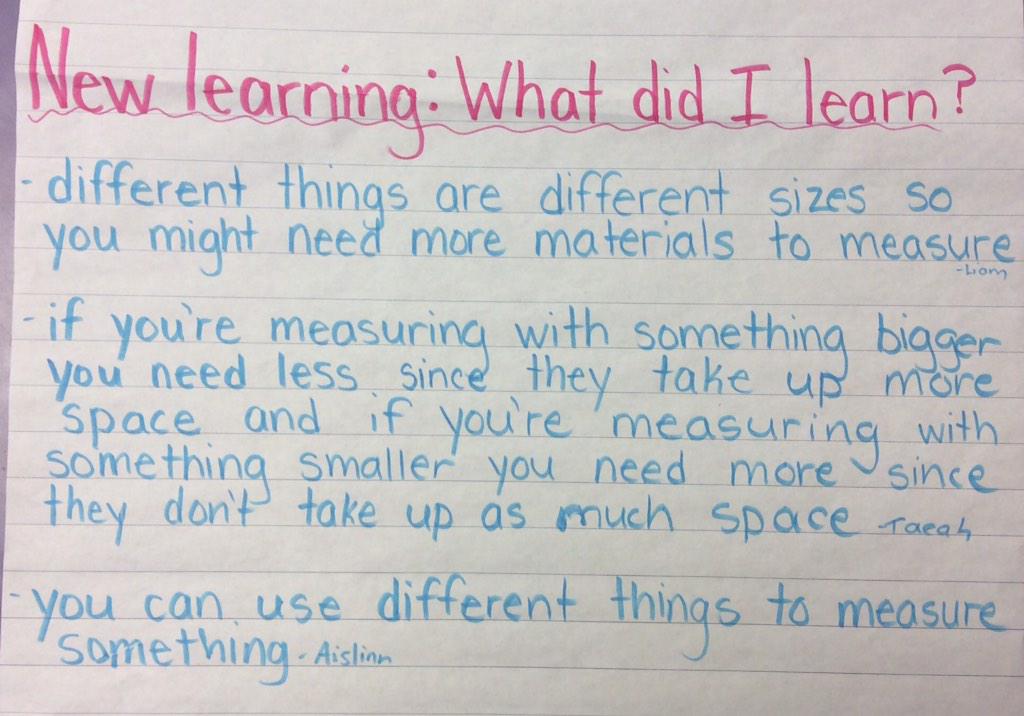 New learning: What did I learn?
- different things are different sizes so
you might need more materials to measure
- Liam
- if you're measuring with something bigger
you need less since they take up more
space and if you're measuring with
something smaller you need more since
they don't take up as much space - Taeah
- you can use different things to measure
something - Aislinn